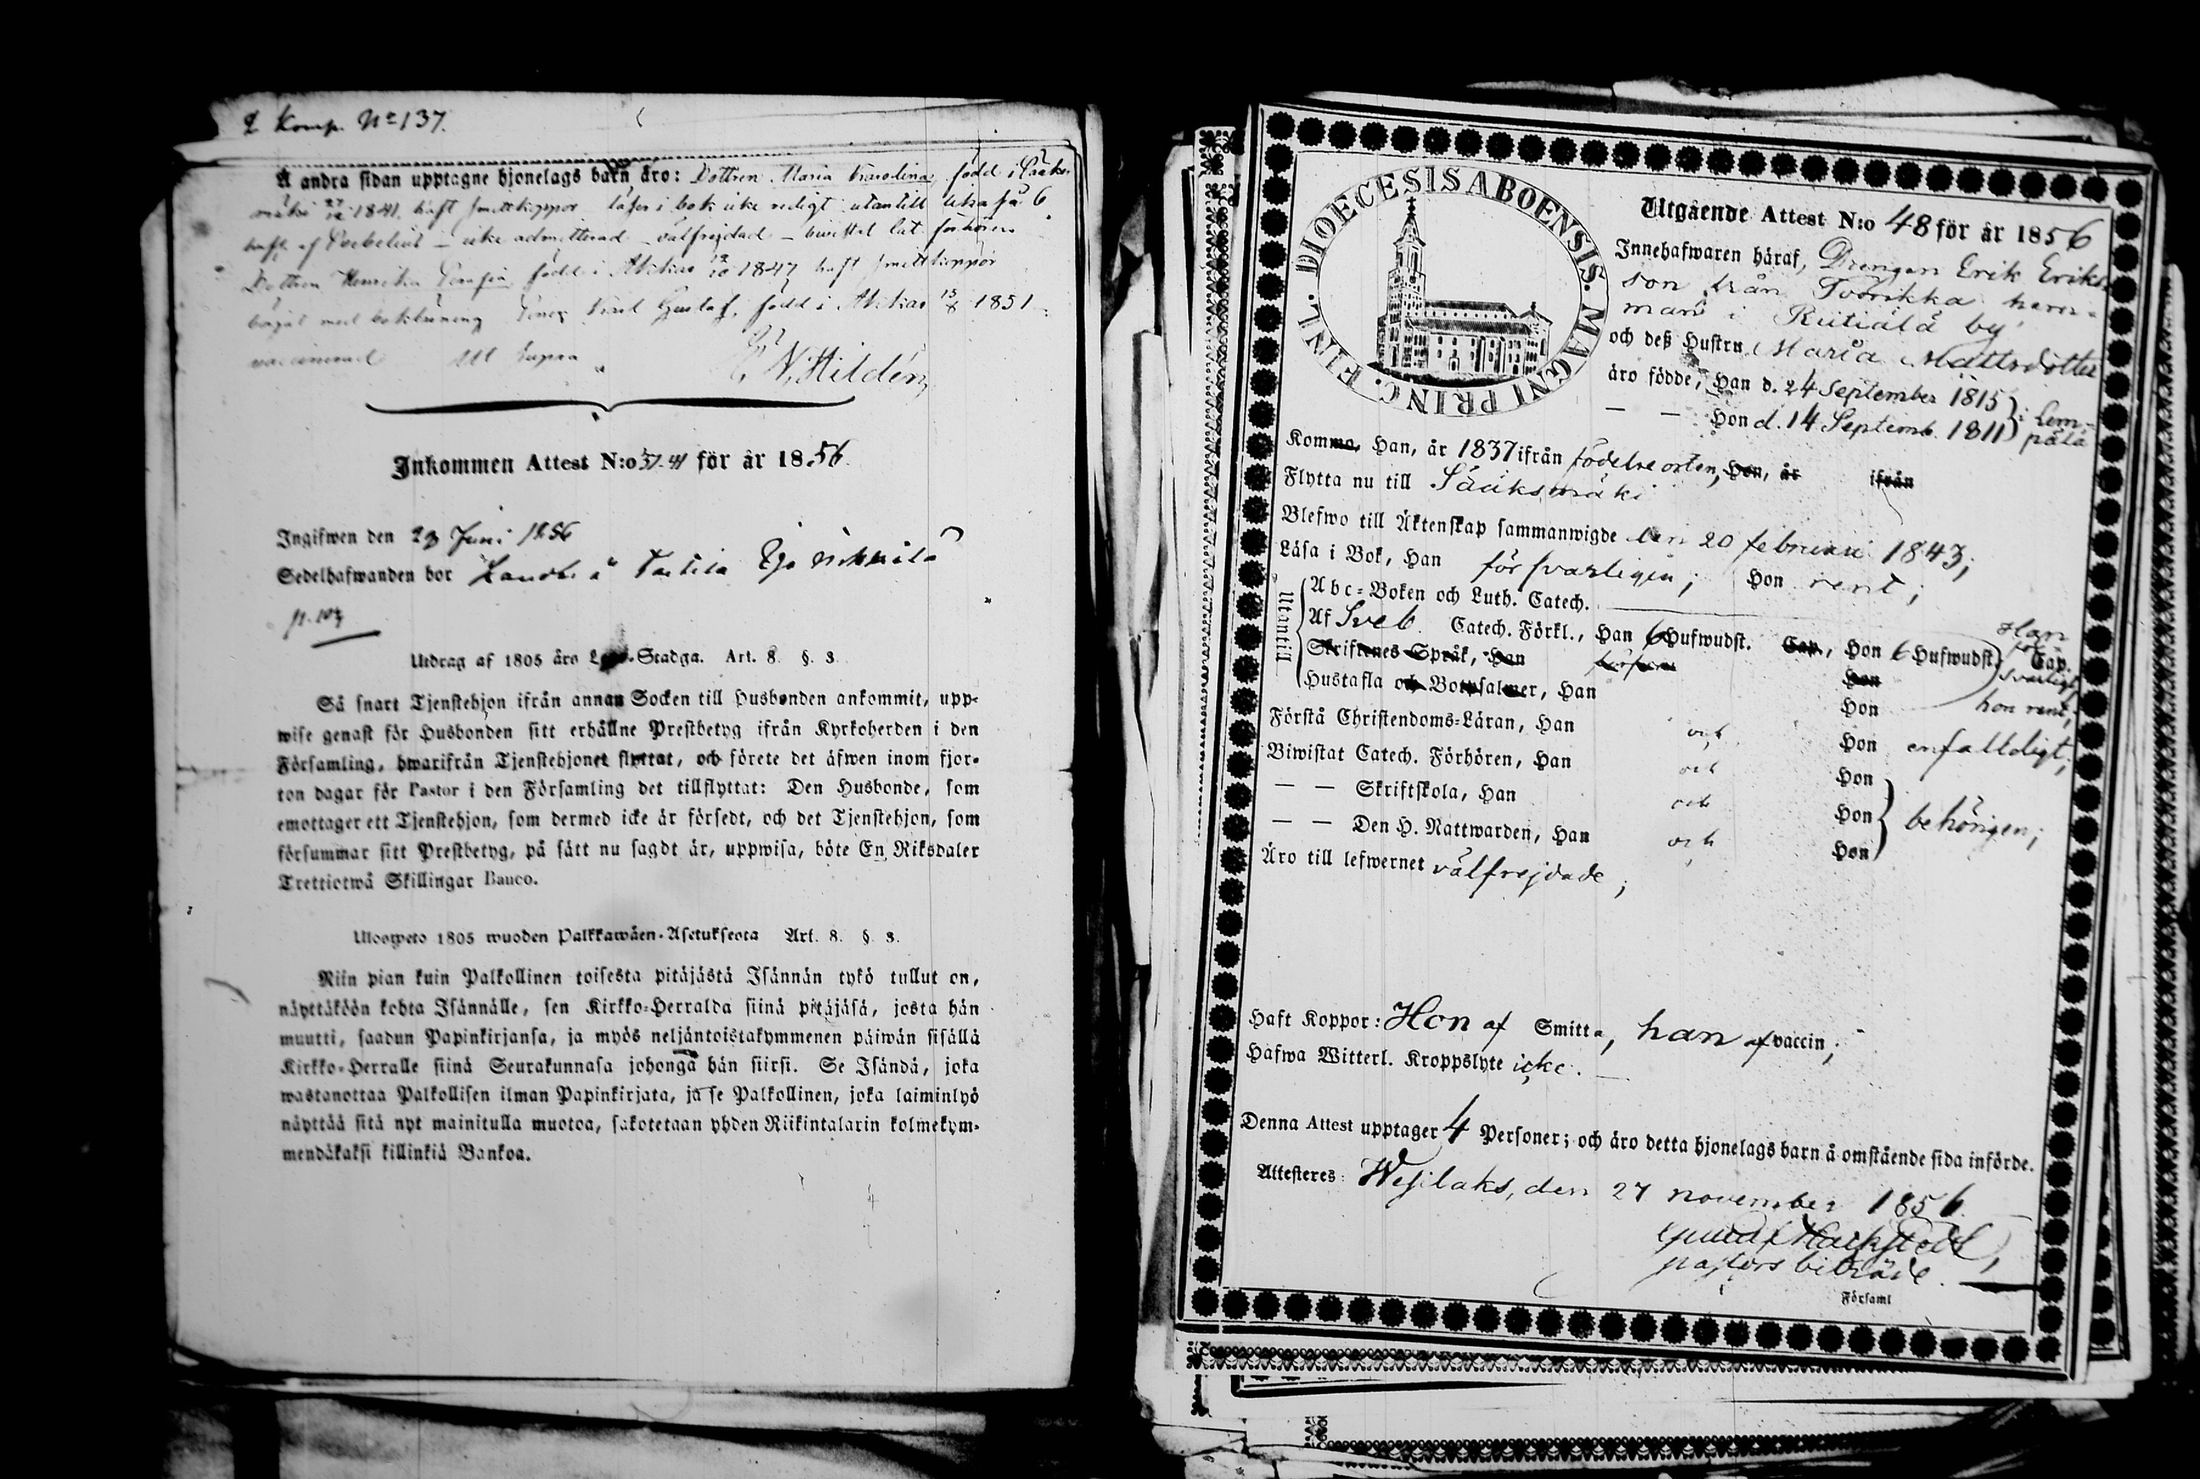 Komp. No 137.
Å andra sidan upptagne hjonelags barn äro: Dottren Maria Karolina, född i Sääks
mäki 27/12 1841, haft smittkoppor läser i bok icke redigt utantill 6
haft af Svebelius – icke admitterad – välfrejdad – bivistat läsförhören
Dottren Henrika Sofia född i Akkas 1847 haft smittkoppor
börjat med bokläsning Karl Gustaf, född i Akkas 1851
vaccinerad Ut supra
N. Hildén
Inkommen Attest N:o 37-41 för år 1856
Ingifwen den 29 Juni 1856
Sedelhafwanden bor
p. 103
Utdrag af 1805 års Lego-Stadga. Art. 8. §. 3.
Så snart Tjenstehjon ifrån annan Socken till Husbonden ankommit, upp-
wise genast för Husbonden sitt erhållne Prestbetyg ifrån Kyrkoherden i den
Församling, hwarifrån Tjenstehjonet flyttat, och förete det äfwen inom fjor-
ton dagar för Pastor i den Församling det tillflyttat: Den Husbonde, som
emottager ett Tjenstehjon, som dermed icke är försedt, och det Tjenstehjon, som
försummar sitt Prestbetyg, på sätt nu sagdt är, uppwisa, böte En Riksdaler
Trettiotwå Skillingar Banco.
Ulosweto 1805 wuoden Palkkawäen-Asetuksesta Art. 8. §. 3.
Niin pian kuin Palkollinen toisesta pitäjästä Isännän tykö tullut on,
näyttäköön kohta Isännälle, sen Kirkko-Herralda siinä pitäjäsä, josta hän
muutti, saadun Papinkirjansa, ja myös neljäntoistakymmenen päiwän sisällä
Kirkko-Herralle siinä Seurakunnasa johonga hän siirsi. Se Isändä, joka
wastanottaa Palkollisen ilman Papinkirjata, ja se Palkollinen, joka laiminlyö
näyttää sitä nyt mainitulla muotoa, sakotetaan yhden Riikintalarin kolmekym-
mendäkaksi killinkiä Bankoa.
DIOECESIS ABOENSIS. MAGNI PRINC. FINL.
Utgående Attest N:o 48 för år 1856
Innehafwaren häraf, Drengen Erik Eriks
son från Tvorikka hem-
man i Kiitiälä by
och deß Hustru Maria Mattsdotter
äro födde, Han d. 24 September 1815
— — Hon d. 14 Septemb. 1811 i Lem-
pälä
Komma, Han, år 1837 ifrån födelseorten, Hon, år ifrån
Flytta nu till Sääksmäki
Blefwo till Äktenskap sammanwigde den 20 februari 1843;
Läsa i Bok, Han försvarligen; Hon rent;
Utantill
Abc-Boken och Luth. Catech.
Af Sveb. Catech. Förkl., Han 6 Hufwudst. Cap., Hon 6 Hufwudst. Cap.
Han för
svarligt
hon rent;
Skriftenes Språk, Han Hon
Hustafla och Botpsalmer, Han Hon
Förstå Christendoms-Läran, Han och Hon enfalldigt;
Biwistat Catech. Förhören, Han och Hon
— — Skriftskola, Han och Hon behörigen;
— — Den H. Nattwarden, Han och Hon
Äro till lefwernet välfrejdade;
Haft Koppor: Hon af Smitta, han af vaccin;
Hafwa Witterl. Kroppslyte icke.
Denna Attest upptager 4 Personer; och äro detta hjonelags barn å omstående sida införde.
Attesteres: Wesilaks, den 27 november 1856.
pastors biträde.
Församl